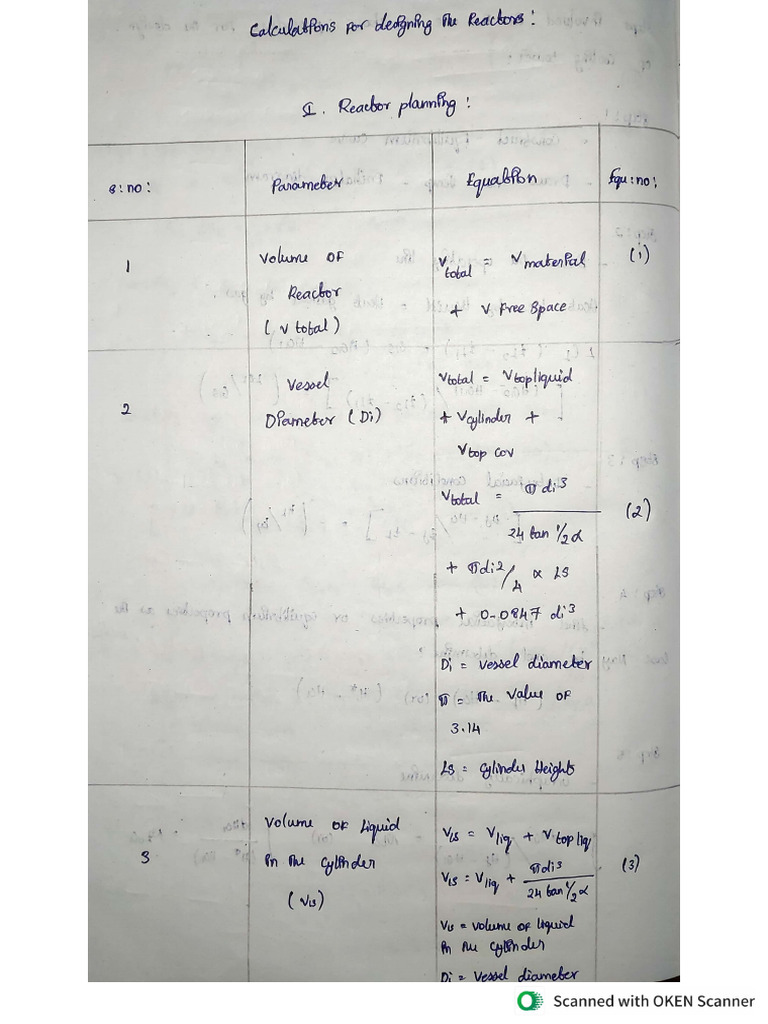 Calculations for designing the Reactors:
I. Reactor planning:
s:no: Parameter Equation Equ:no:
1 Volume of Reactor (V total) V total = V material + V Free Space (i)
2 Vessel Diameter (Di) Vtotal = Vtopliquid + Vcylinder + Vtop cov
Vtotal = π di³ / 24 tan ½ α (2)
+ πdi2/4 × LS
+ 0.0847 di³
Di = vessel diameter
π = The value of
3.14
LS = cylinder Heights
3 Volume of Liquid in the cylinder (VLS) VLS = Vliq + V top liq
VLS = Vliq + πdi³ / 24 tan ½ α (3)
VLS = volume of liquid
in the cylinder
Di = Vessel diameter
Scanned with OKEN Scanner